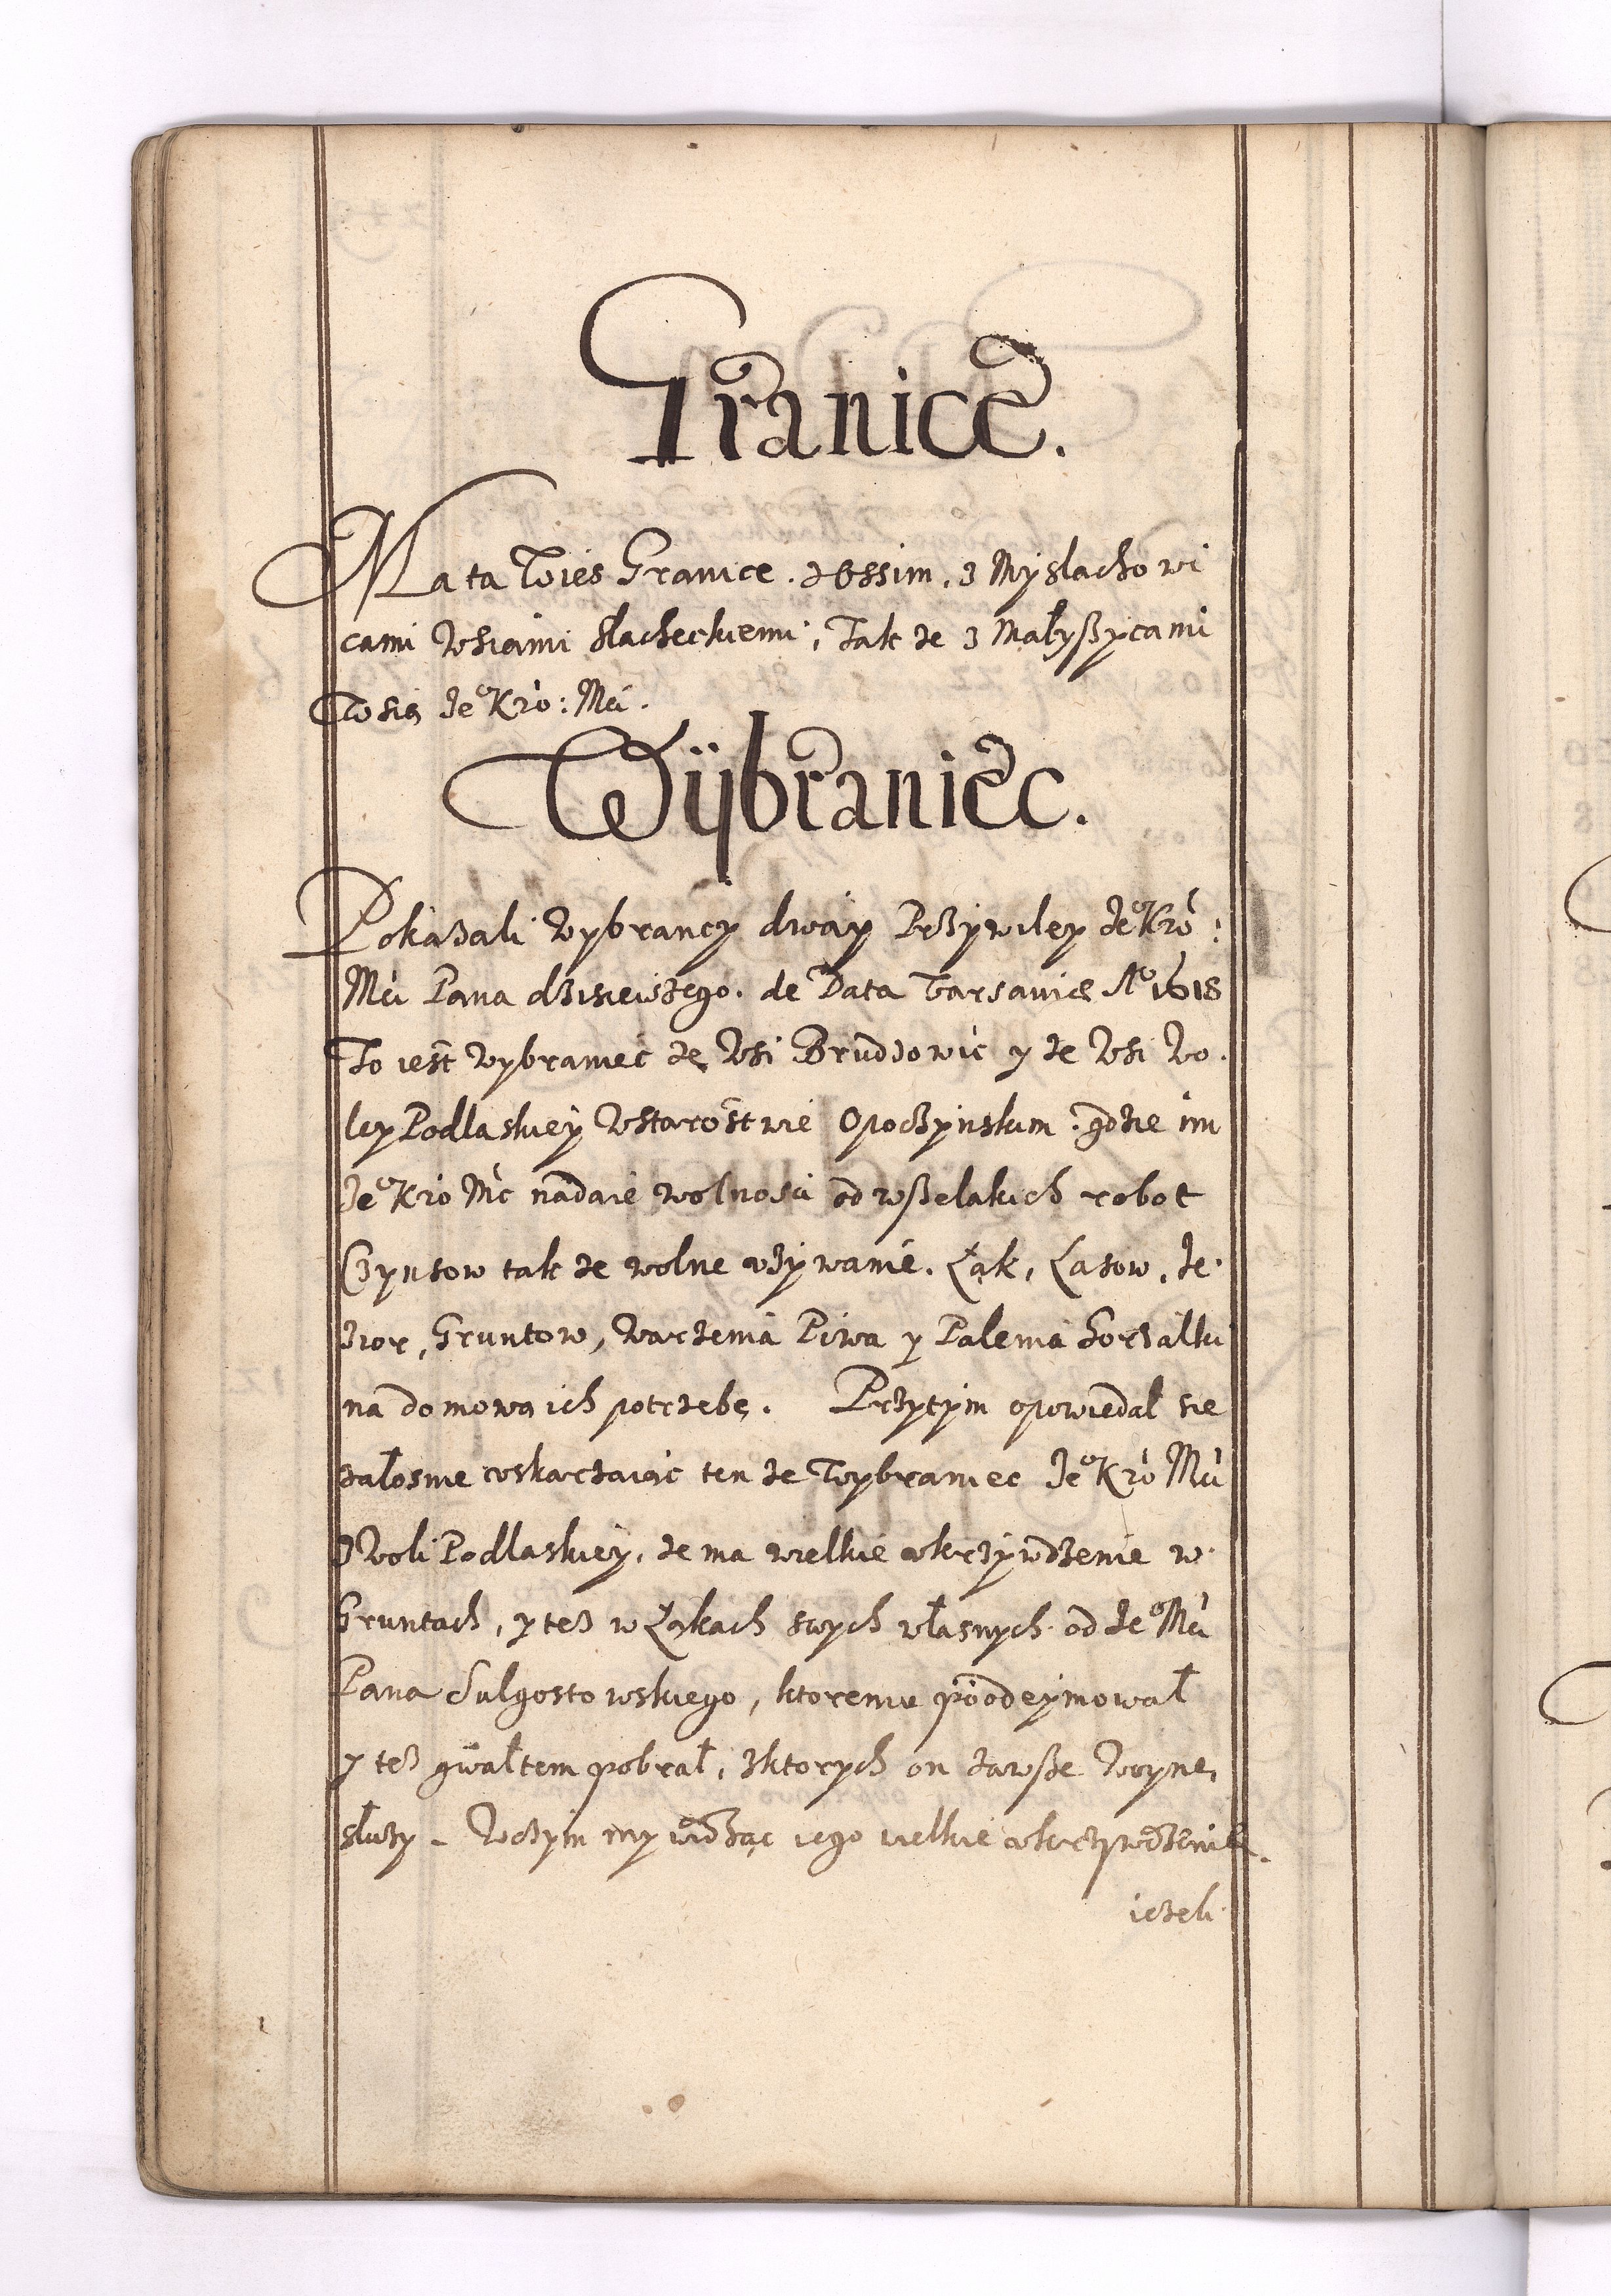 Granice.
Ma ta Wies Granice. z Ossim, z Myslachowi
cami Wsiami slacheckiemi, Takze z Małyßycami
Wsią Je° Kro: Mći.
Wÿbraniec.
Pokazali Wybrancy dway Przywiley Je° Kro:
Mći Pana dzisieiszego. de Data Varsaviæ A° 1618
To iest Wybraniec ze Wsi Brudzowic y ze Wsi Wo.
ley Podlaskiey Wstarostwie Opoczynskim. gdzie im
Je° Kro Mć nadaie wolnosci od wßelakich robot
Czynsow takze wolne vżywanie. Łąk, Lasow, Je.
zior, Gruntow, Warzenia Piwa y Palenia Gorzałki
na domową ich potrzebę. Przytym opowiedał sie
załosnie voskarzaiąc ten ze Wybraniec Je° Kro Mći
z Woli Podlaskiey, ze ma wielkie vkrzywdzenie w.
Gruntach, y tez w Łąkach swych własnych od Je° Mći
Pana Sulgostowskiego, ktoremu poodeymował
y tez gwałtem pobrał, zktorych on zawße Woynę
słuzy. Wczym my widząc iego wielkie vkrzywdzenie.
iezeli